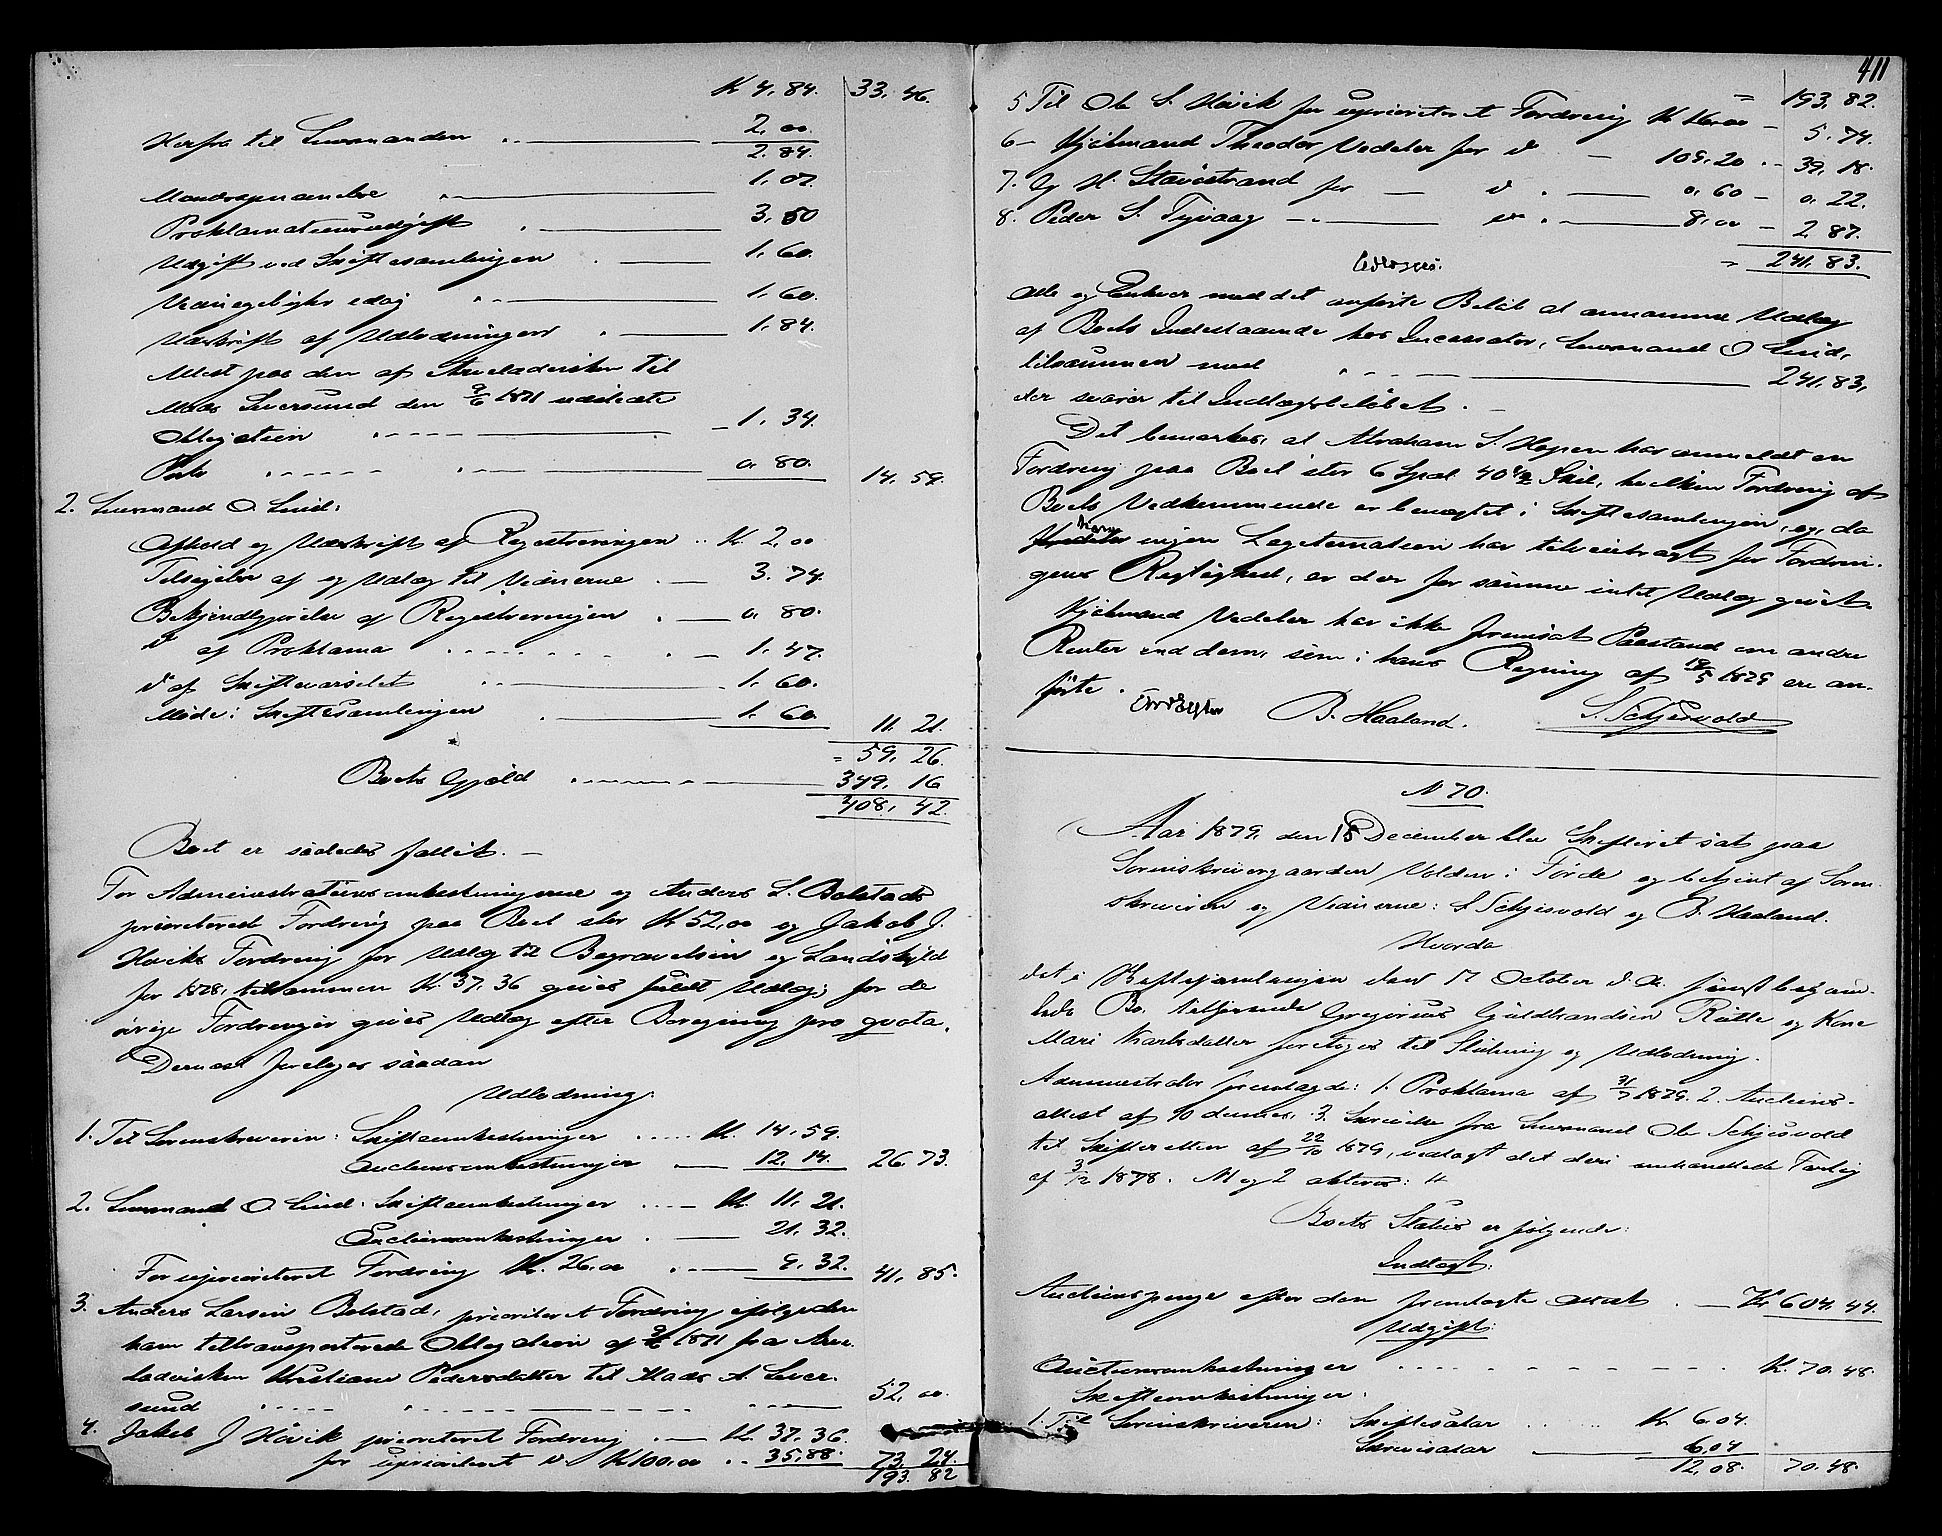 K 4,84. 33,46.
Herfra til Lensmanden 2,00.
2.84.
1.07.
Proklamationsudgift 3,50
Udgift ved Skiftesamlingen 1,60.
1,60.
Udskrift af Udlodningen 1,84.
Attest paa den af til
Mads Leversund den 9/6 1871 udstedte
Obligation 1.34.
Porto 0.80. 14.59.
2. Lensmand O. Lind:
Ophold og Udskrift af Registreringen K. 2,00
Tilsigelse af og Udlæg til Vidnerne 3.74.
Bekjendtgjørelse af Registreringen 0.80.
do af Proklama 1.47.
do af Skiftevarselet 1.60.
Møde i Skiftesamlingen 1.60 11.21.
= 59.26.
Boets Gjæld 349.16
408.42.
Boet er saaledes fallit. —
For Administrationsomkostningerne og Anders L. Bolstads
prioriterede Fordring paa Boet stor K 52,00 og Jakob J.
Høviks Fordring for Udlæg til Begravelsen og Landskyld
for 1878, tilsammen K. 37,36 gives fuldt Udlæg; for de
øvrige Fordringer gives Udlæg efter Beregning pro qvota.
Dernæst foretoges saadan
Udlodning:
1. Til Sorenskriveren: Skifteomkostninger K. 14.59.
Auctionsomkostninger 12.14. 26.73.
2. Lensmand O. Lind: Skifteomkostninger K. 11.21.
Auctionsomkostninger 21.32.
For uprioriteret Fordring K. 26,00 9.32. 41.85.
3. Anders Larsen Bolstad, prioriteret Fordring ifølge den
ham tiltransporterede Obligation af 9/6 1871 fra
Kristiane Pedersdatter til Mads A. Lever-
sund 52,00.
4. Jakob J Høvik prioriteret Fordring K. 37.36.
for uprioriteret do K 100,00 35.88. 73.24.
193.82
411
= 193.82.
5 Til Ole S. Høvik for uprioriteret Fordring K 16,00 5.74.
6 — Kjøbmand Theodor Vedeler for do 109.20 39.18.
7. H. Stavøstrand for do 0.60 — 0.22.
8. Peder S. Tyvaag — do — 8,00 — 2.87.
= 241.83.
Alle og Enhver med det anførte Beløb at annamme Udlæg
af Boets Indestaaende hos Incassator, Lensmand O Lind,
tilsammen med 241.83,
der svarer til Indtægtsbeløbet. —
Det bemærkes, at Abraham S. Hopen har anmeldt en
Fordring paa Boet stor 6 Spd. 40 1/2 Skil, hvilken Fordring af
Boets Vedkommende er benægtet i Skiftesamlingen, og da
han
ingen Legitimation har tilveiebragt for Fordrin-
gens Rigtighed, er der for samme intet Udlæg givet.
Kjøbmand Vedeler har ikke fremsat Paastand om andre
Renter end dem, som i hans Regning af 19/5 1879 ere an-
førte.
B. Haaland. S. Schjesvold
N 70.
Aar 1879. den 18 December blev Skifteret sat paa
Sorenskrivergaarden Volden i Førde og betjent af Soren-
skriveren og Vidnerne: S Schjesvold og B. Haaland.
Hvorda
det i Skiftesamlingen den 17 October d. A. sidst behand-
lede Bo, tilhørende Gregorius Guldbrandsen Rutle og Kone
Mari Karlsdatter foretoges til Slutning og Udlodning.
Administrator fremlagde: 1. Proklama af 31/7 1879. 2. Auctions-
attest af 10 dennes. 3. Skrivelse fra Lensmand Ole Schjesvold
til Skifteretten af 22/10 1879, vedlagt det deri omhandlede Forlig
af 3/12 1878.
Boets Status er følgende:
Indtægt:
Auctionspenge efter den fremlagte Attest K 604.44.
Udgift:
Auctionsomkostninger K. 70.48.
Skifteomkostninger:
1. Til Sorenskriveren: Skiftesalær K. 6.04.
Skrivesalær 6.04
12.08. 70.48.